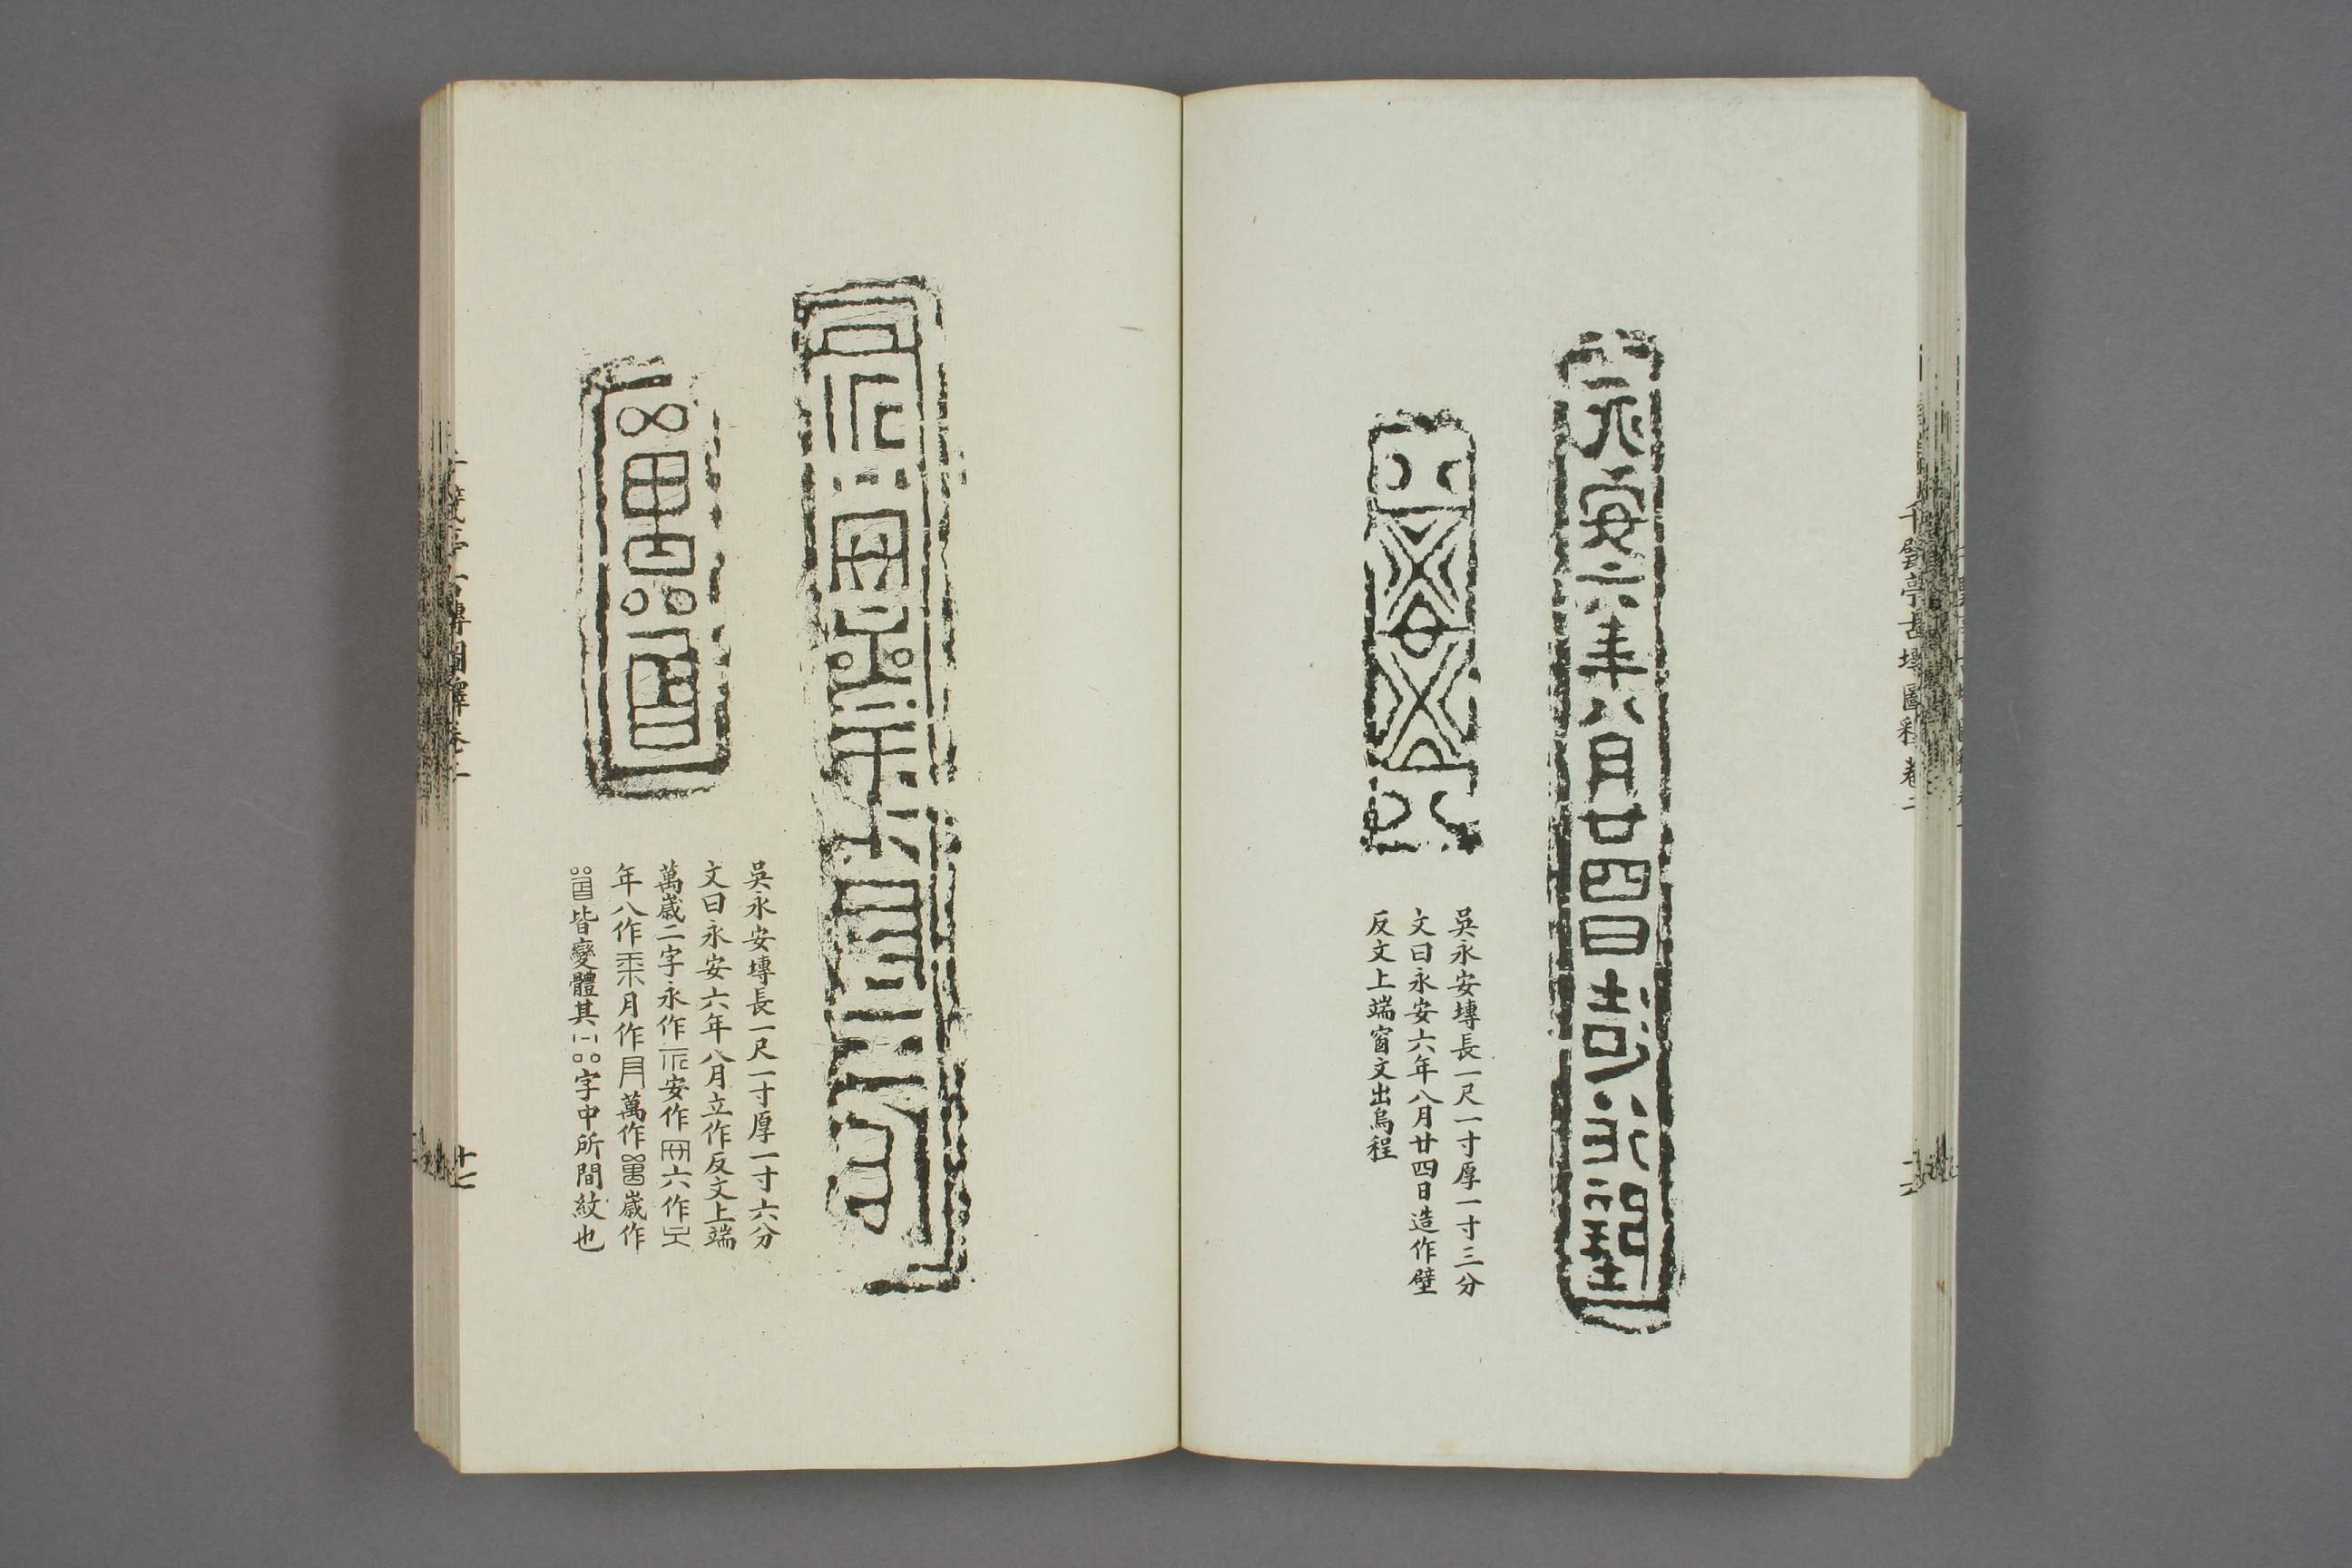 千甓亭古塼圖釋卷二
永安六年八月廿四日造作壁
吳永安塼長一尺一寸厚一寸三分
文曰永安六年八月廿四日造作壁
反文上端窗文出烏程
吳永安塼長一尺一寸厚一寸六分
文曰永安六年八月立作反文上端
萬歲二字永作安作六作
年八作月作萬作歲作
皆變體其字中所間紋也
十七